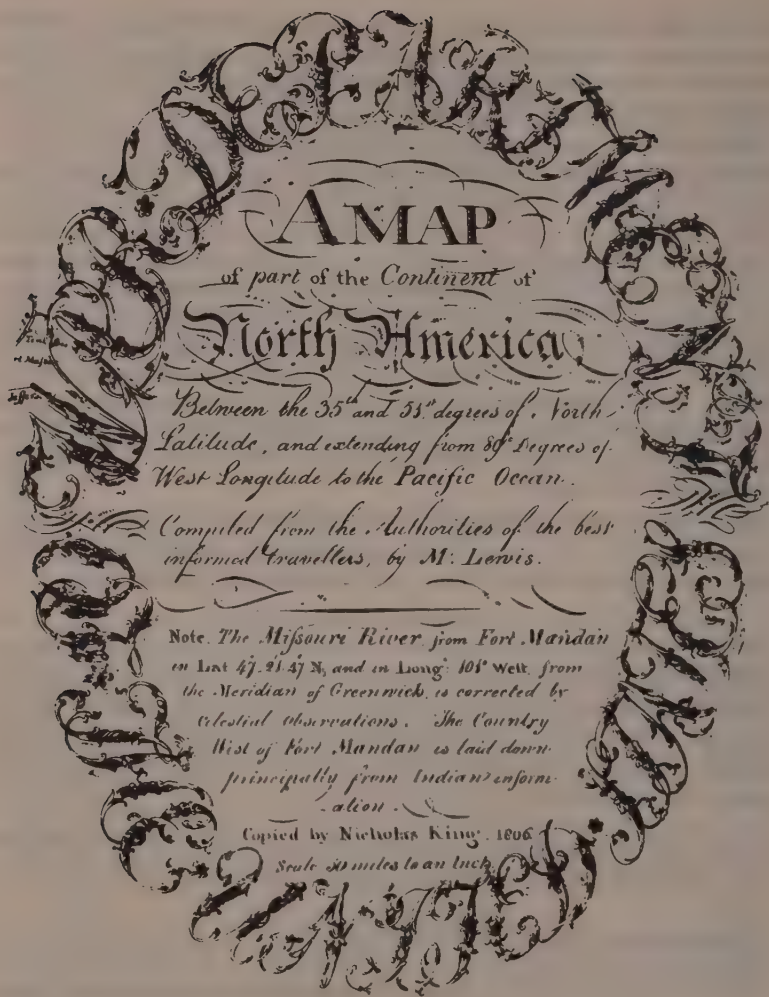 WAR·DEPARTMENT
A MAP
of part of the Continent of
North America,
Between the 35th and 51st degrees of North
Latitude, and extending from 89° Degrees of
West Longitude to the Pacific Ocean.
Compiled from the Authorities of the best
informed travellers, by M. Lewis.
Note. The Miſsouri River from Fort Mandan
in Lat 47. 21. 47 N, and in Long: 101° West, from
the Meridian of Greenwich, is corrected by
Celestial Observations. The Country
West of Fort Mandan is laid down
principally from Indian inform-
ation.
Copied by Nicholas King. 1806
Scale 50 miles to an Inch.